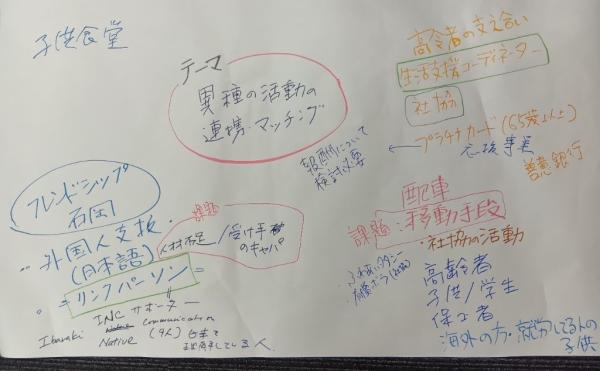 子供食堂
テーマ
異種の活動の
連携・マッチング
高齢者の支え合い
生活支援コーディネーター
社協
プラチナカード(65歳以上)
応援事業
善意銀行
報酬について
検討必要
フレンドシップ
石岡
外国人支援
(日本語)
=リンクパーソン=
課題
人材不足/受け手
のキャパ
INC サポーター
Ibaraki Native Communication
(9人)
配車
課題:移動手段
・社協の活動
高齢者
子供/学生
保護者
海外の方・就労してる人の
子供